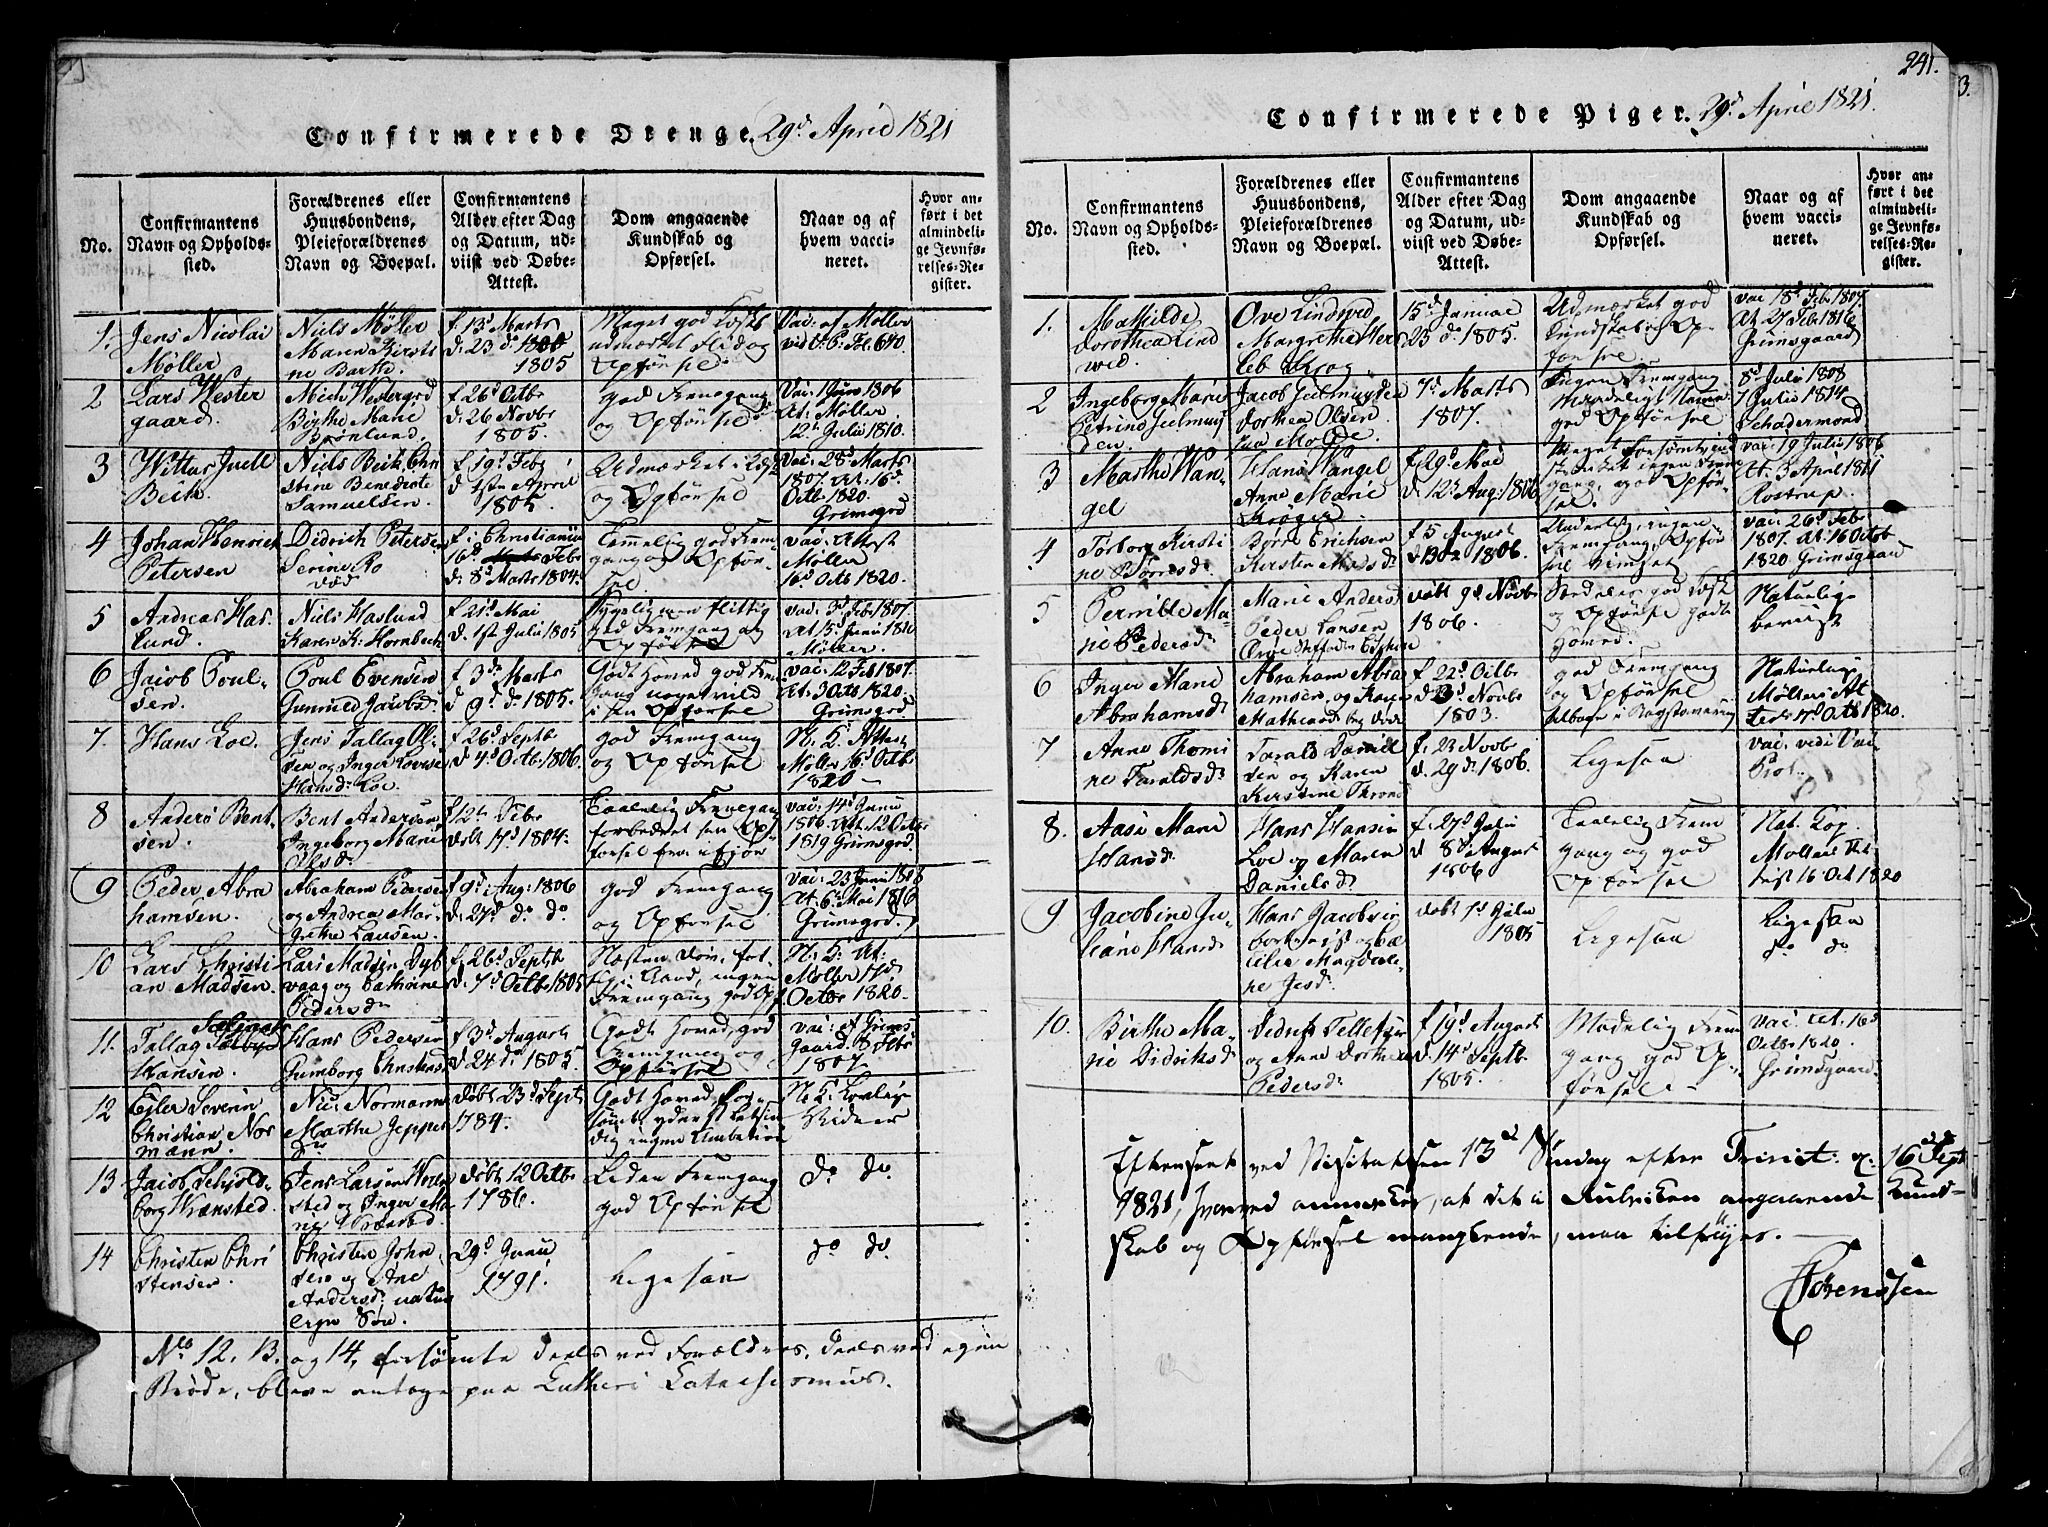 241.
Confirmerede Drenge. 29d April 1821
No.
Confirmantens Navn og Opholdssted.
Forældrenes eller Huusbondens, Pleieforældrenes Navn og Boepæl.
Confirmantens Alder efter Dag og Datum, udviist ved Døbe-Attest.
Dom angaaende Kundskab og Opførsel.
Naar og af hvem vaccineret.
Hvor anført i det almindelige Jevnførelses-Register.
1. Jens Nicolai Møller
Niels Møller Maren Kirstine Barthe.
f. 13d Marts d. 23 do 1805
Meget god udmærket Flid og Opførsel
Vac: af Møller
2 Lars Westergaard
Mich Westergrd Birthe Marie Brønlund.
f. 26d Octbr d. 26 Novbr 1805.
god Fremgang og Opførsel
Vac: 1 Juni 1806 At: Møller 12t Julii 1810.
3 Wittus Juell Beck.
Niels Beck Christine Benedicte Samuelsen.
f. 19d Feb d. 1ste April 1805
Udmærket og Opførsel
Vac: 28d Marts 1807. At. 16d Octb 1820. Grimsgrd
4 Johan Henrich Petersen
Didrich Petersen Serine
f. i Christiania 16d Febr d. 8d Marts 1804.
Temmelig god Fremgang og Opførsel
vac: Attest Møller 16d Octb 1820.
5 Andreas Haslund.
Niels Haslund Karen K: Hornbech
f. 21d Mai d. 1st Julii 1805
flittig god Fremgang og Opførsel
vac: 3d Feb 1807. At 15d Junii 1810 Møller.
6 Jacob Poulsen.
Poul Evensen Gunnild Jacobsd
f. 3de Marts d 9d do 1805.
Godt Hoved god Fremgang noget vild i sin Opførsel
vac: 12 Feb 1807. At. Octb 1820. Grimsgrd
7. Hans Loe.
Jens Tallag Olsen og Inger Hansd: Loe
f. 26d Septb d. 4d Octb 1806.
god Fremgang og Opførsel
N. L. Attest Møller 16d Octbr 1820 —
8 Anders Bentsen.
Bent Andersen Ingeborg Marie Olsd:
f. 12te Febr døbt 17d 1804.
Taalelig Fremgang forbedret sin Opførsel fra i Fjor
vac: 14d Junii 1806. Att. 12 Octbr 1819 Grimsgrd.
9 Peder Abrahamsen.
Abraham Pedersen og Andrea Margrethe Larsen.
f. 9d Aug: 1806 d. 27d do do
god Fremgang og Opførsel
vac: 23 Junii 1808 At. 6d Mai 1816 Grimsgrd
10 Lars Christian Madsen.
Lars Madsen Dybvaag og Cathrine Pedersd
f. 26d Septb d. 7d Octb 1805
Næsten Døv, ingen Fremgang god Opf
N: L: At: Møller 17d Octbr 1820.
11. Tallag Hansen.
Hans Pedersen Gumborg Christens
f. 3d August d. 24 do 1805.
Godt Hoved, god Fremgang og Opførsel
vac: A Grimsgaard. 8 Febr 1807
12 Eiler Severin Christian Normann.
Nic: Normann Marthe Jeppesdr
døbt 23d Sept 1784.
Godt Hoved, ingen Ambition
13 Jacob Schjoldborg Wrænsted.
Jens Larsen Wrænsted og Inger Marie Wrænsted
døbt 12 Octbr 1786.
Liden Fremgang god Opførsel
do do
14 Christen Christensen.
Christen Johnsen og Ane Andersd: naturlig Søn.
29d Junii 1791.
Ligesaa
do do
No 12, 13 og 14, forsømte deels ved Forældres, deels ved egen
Brøde, bleve antagne paa Lutheri Catechismus.
Confirmerede Piger. 29d April 1821.
No.
Confirmantens Navn og Opholdssted.
Forældrenes eller Huusbondens, Pleieforældrenes Navn og Boepæl.
Confirmantens Alder efter Dag og Datum, udviist ved Døbe-Attest.
Dom angaaende Kundskab og Opførsel.
Naar og af hvem vaccineret.
Hvor anført i det almindelige Jevnførelses-Register.
1. Mathilde Dorothea Lindwed
Ove Lindved Margrethe Krog
15d Januar 23 do 1805.
Udmærket god Kundskab og Opførsel.
vac 18d Feb 1807. At. 27 Feb 1816 Grimsgaard
2 Ingeborg Marie Petrine Gielmuyden
Jacob Gielmuyden Dorthea Olsen paa Molde.
7d Marts 1807.
Ingen Fremgang god Opførsel
8d Julii 1808 7 Julii 1814 Schadermond
3 Marthe Wangel
Hans Wangel Anne Marie Krøger
f. 29d Mai d. 12d Aug: 1806
Meget forsømt, ingen Fremgang, god Opførsel.
vac: 19 Julii 1806 At. 3 April 1811 Rostrup.
4 Torbor Kirstine Børresdr
Børre Erichsen Kirsten Madsd:
f 5 August d 1806.
ingen Fremgang, Opførsel
vac: 26d Feb 1807. At. 16 Octob 1820 Grimsgaard
5 Pernille Marie Pedersdr
Marie Andersd Peder Larsen
døbt 9d Novbr 1806.
Naturlige beviist
6 Inger Marie Abrahamsdr
Abraham Abrahamsen, og Karen
f. 22d Octbr d. 3d Novbr 1803.
god Fremgang og Opførsel
Naturlige Møllers Attest 17d Octb 1820.
7 Anne Thomine Taraldsdr
Tarald Daniel sen og Karen Kirstine
f. 23 Novbr d. 29 do 1806.
Ligesaa
vac: vedi Vac Prot.
8. Aase Marie Hansdr
Hans Hansen Loe og Maren Danielsdr
f. 27d Julii d 8d August 1806
Taalelig Fremgang og god Opførsel
Nat. Kop. Møllers Attest 16 Oct 1820
9 Jacobine Juliane Hansdr
Hans Jacobsen og Cecilie Magdalene Jesdr
døbt 7d Julii 1805
Ligesaa
Ligesaa do do
10. Birthe Marie Didriksdr
Didrik Tellefsen og Anne Dorthea Pedersd:
f. 19d August d. 14d Septb 1805.
Maadelig Fremgang god Opførsel —
vac. At. 16d Octbr 1820. Grimsgaard.
Efterseet ved Visitatsen 13de Søndag efter Trinit. o: 16de Sept
1821, hvorved anmerkes, at det i Rubriken angaaende Kund-
skab og Opførsel manglende, maa tilføyes. —
Sørenssen